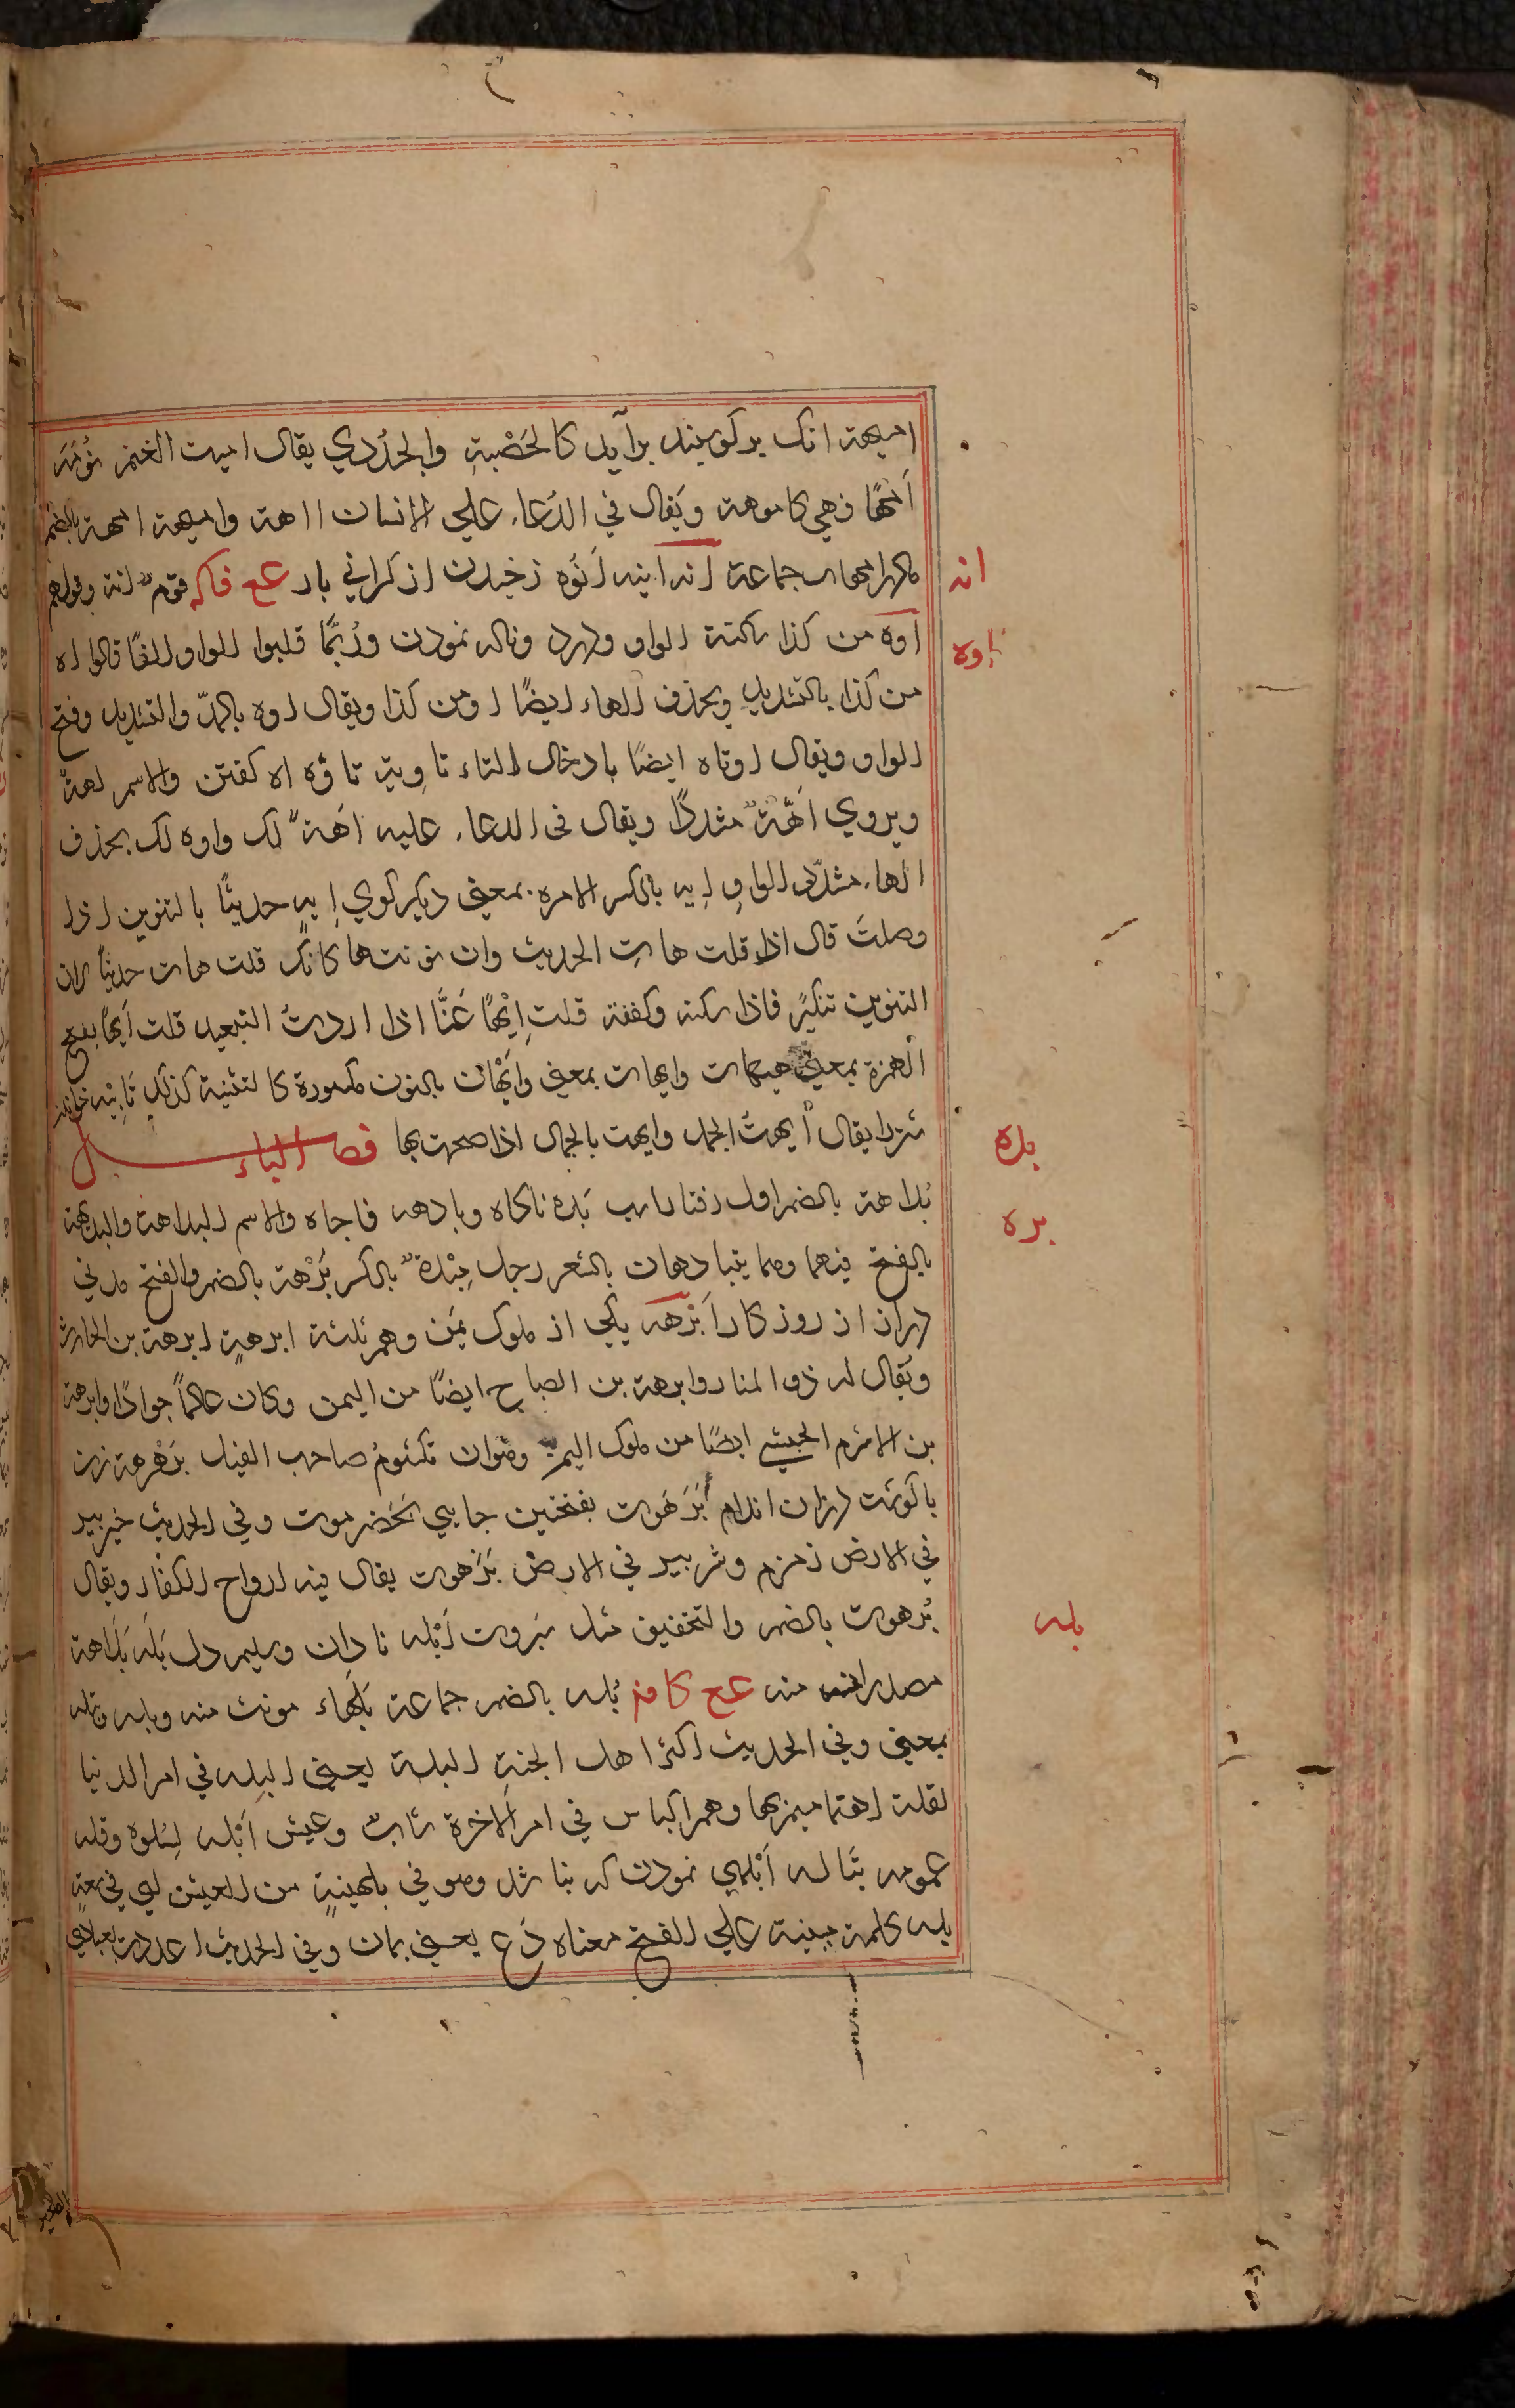 اميهة انک بر کوسپند برآيد کالحَصْبةِ والجُدُدي يقال اميهت الغنم تُؤمَهَ
اَمْهًا فهي ماموهة ويُقال في الدُعاء علي الانسان ااهة واميهة امهة بالضم
انه
جماعة انه انيه اَنُوه زخيدن از کراني بار عح فاکه قوم انه وقولهم
اوه
اَوه من کذا ساکنة الواو ودرد وناله نمودن ورُبّمَا قلبوا الواو الفًا قالوا اه
من کذا بالتشديد وبحذف الهاء ايضًا او من کذا ويقال اوه بالمدّ والتشديد وفتح
الواو ويقال اوتاه ايضًا بادخال التاء تاويه تاؤه اه کفتن والاسم اهة
ويروي اَهَّة مشددًا ويقال في الدعاء عليه اَهَة لک واوه لک بحذف
الهاء مشدّد الواو اِيه بالکسر الامره بمعني ديکر کوي اِيهٍ حديثًا بالتنوين اذا
وصلتَ قال اذا قلت هاتِ الحديث وان نونتها کانک قلت هات حديثًا لان
التنوين تنکيرً فاذا سکته وکففته قلت اِيْهًا عَنَّا اذا اردتَ التبعيد قلت اَيهًا بفتح
الهمزة بمعني هيهات وايهات بمعني واَيْهَان بالنون مکسورة کالتثنية کذلک تَاْيِيه خواندن
شتر را يقال اَيهتُ الجمل وايهت بالجمال اذا صحت بها فصل الباء
بده
بُداهة بالضم اول رفتار اسب بَده ناکاه وبادهه فاجاه والاسم البداهة والبديهة
بره
بالفتح فيهما وهما يتبادهان بالشعر رجل مِبْدهٌ بالکسر بُرْهة بالضم والفتح مدتي
دراز از روزکار اَبْرَهه يکي از ملوک يمَن وهم ثلثة ابرهةِ ابرهة بن الحارث
ويُقال له ذو المنار وابرهة بن الصباح ايضًا من اليمن وکان عالمًا جوادًا وابرهة
بن الاشرم الحبشي ايضًا من ملوک اليمن وهو ابو يکسُومُ صاحب الفيل بَرَهْرهة زن
با کوشت لرزان اندام بَرَهُوت بفتحتين جايي بحَضرموت وفي الحديث خير بير
في الارض زمزم وشر بير في الارض بَرَهوت يقال فيه ارواح الکفار ويقال
بُرهوت بالضم والتخفيف مثل سُبروت اَبْله نادان وسليم دل بَله بَلاهة
بله
مصدر منه عح کافر بُله بالضم جماعة بَلهَاء مونث منه وبله وتبله
بمعني وفي الحديث اکثر اهل الجنةِ البلة يعني البِله في امر الدنيا
لقلة اهتمامهم بها وهم اکياس في امر الاخرة شابٌ وعيش اَبْله لِسُلوه وقلة
غمومه تَباله اَبْلهي نمودن که نباشد وهو في بلهنيةٍ من العيش اي في سعةٍ
بله کلمة مبنية علي الفتح معناه دَع يعني بمان وفي الحديث اعددت لعبادي
الصالحين